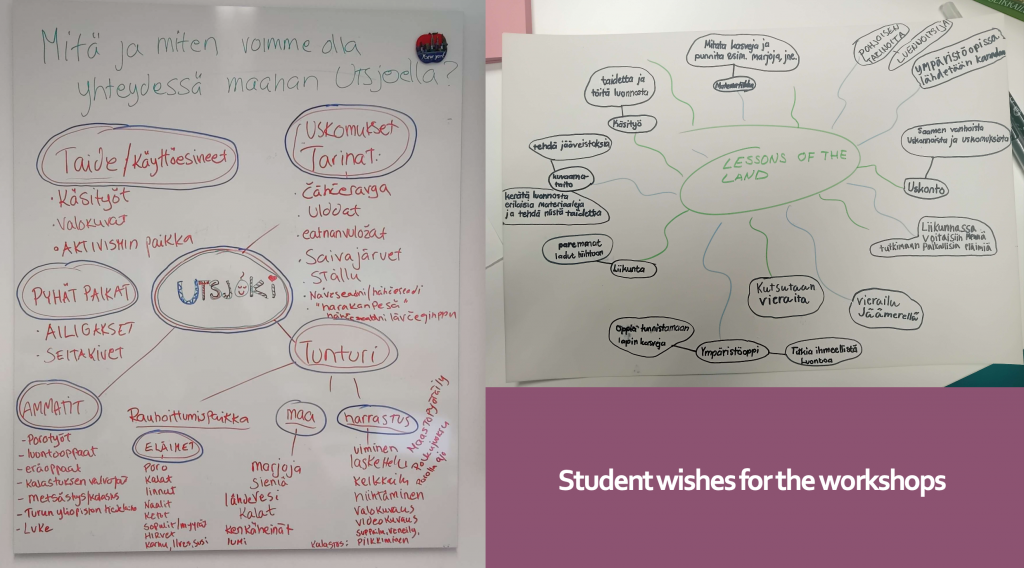 Mitä ja miten voimme olla
yhteydessä maahan Utsjoella?
Taide/Käyttöesineet
· Käsityöt
· Valokuvat
· AKTIVISMIN PAIKKA
USKOMUKSET
TARINAT
· Čáhceravga
· Ulddat
· eatnanvuložat
· Saivajärvet
Stállu
"harakanpesä"
PYHÄT PAIKAT
· AILIGAKSET
· SEITAKIVET
UTSJOKI
TUNTURI
AMMATIT
- Porotyöt
- luontooppaat
- eräoppaat
- kalastuksen valvojat
- metsästys/kalastus
- Turun yliopiston
- Luke
Rauhoittumispaikka
ELÄIMET
Poro
Kalat
linnut
Naalit
Ketut
Sopulit/myyrät
HIRVET
Karhu, Ilves, susi
maa
marjoja
sieniä
lähdevesi
Kalat
kenkäheinät
lumi
harrastus
uiminen
laskettelu
kelkkeily
hiihtäminen
valokuvaus
videokuvaus
suppailu, veneily,
Kalastus: pilkkiminen
MAASTOPYÖRÄILY
Polkujuoksu
LESSONS OF THE
LAND
Mitata kasveja ja
punnita esim. marjoja, jne.
Matematiikka
taidetta ja
töitä luonnosta
Käsityö
tehdä jääveistoksia
kuvaama-
taito
kerätä luonnosta
erilaisia materiaaleja
ja tehdä niistä taidetta
paremmat
ladut hiihtoon
Liikunta
POHJOISEN
TARINOITA
YMPÄRISTÖOPISSA
lähdetään
Saamen vanhoista
Uskonnoista ja uskomuksista
Uskonto
Liikunnassa
voitaisiin mennä
tutkimaan paikallisia eläimiä
Kutsutaan
vieraita
vierailu
Jäämerellä
Oppia tunnistamaan
lapin kasveja
Ympäristöoppi
Tutkia ihmeellistä
luontoa
Student wishes for the workshops